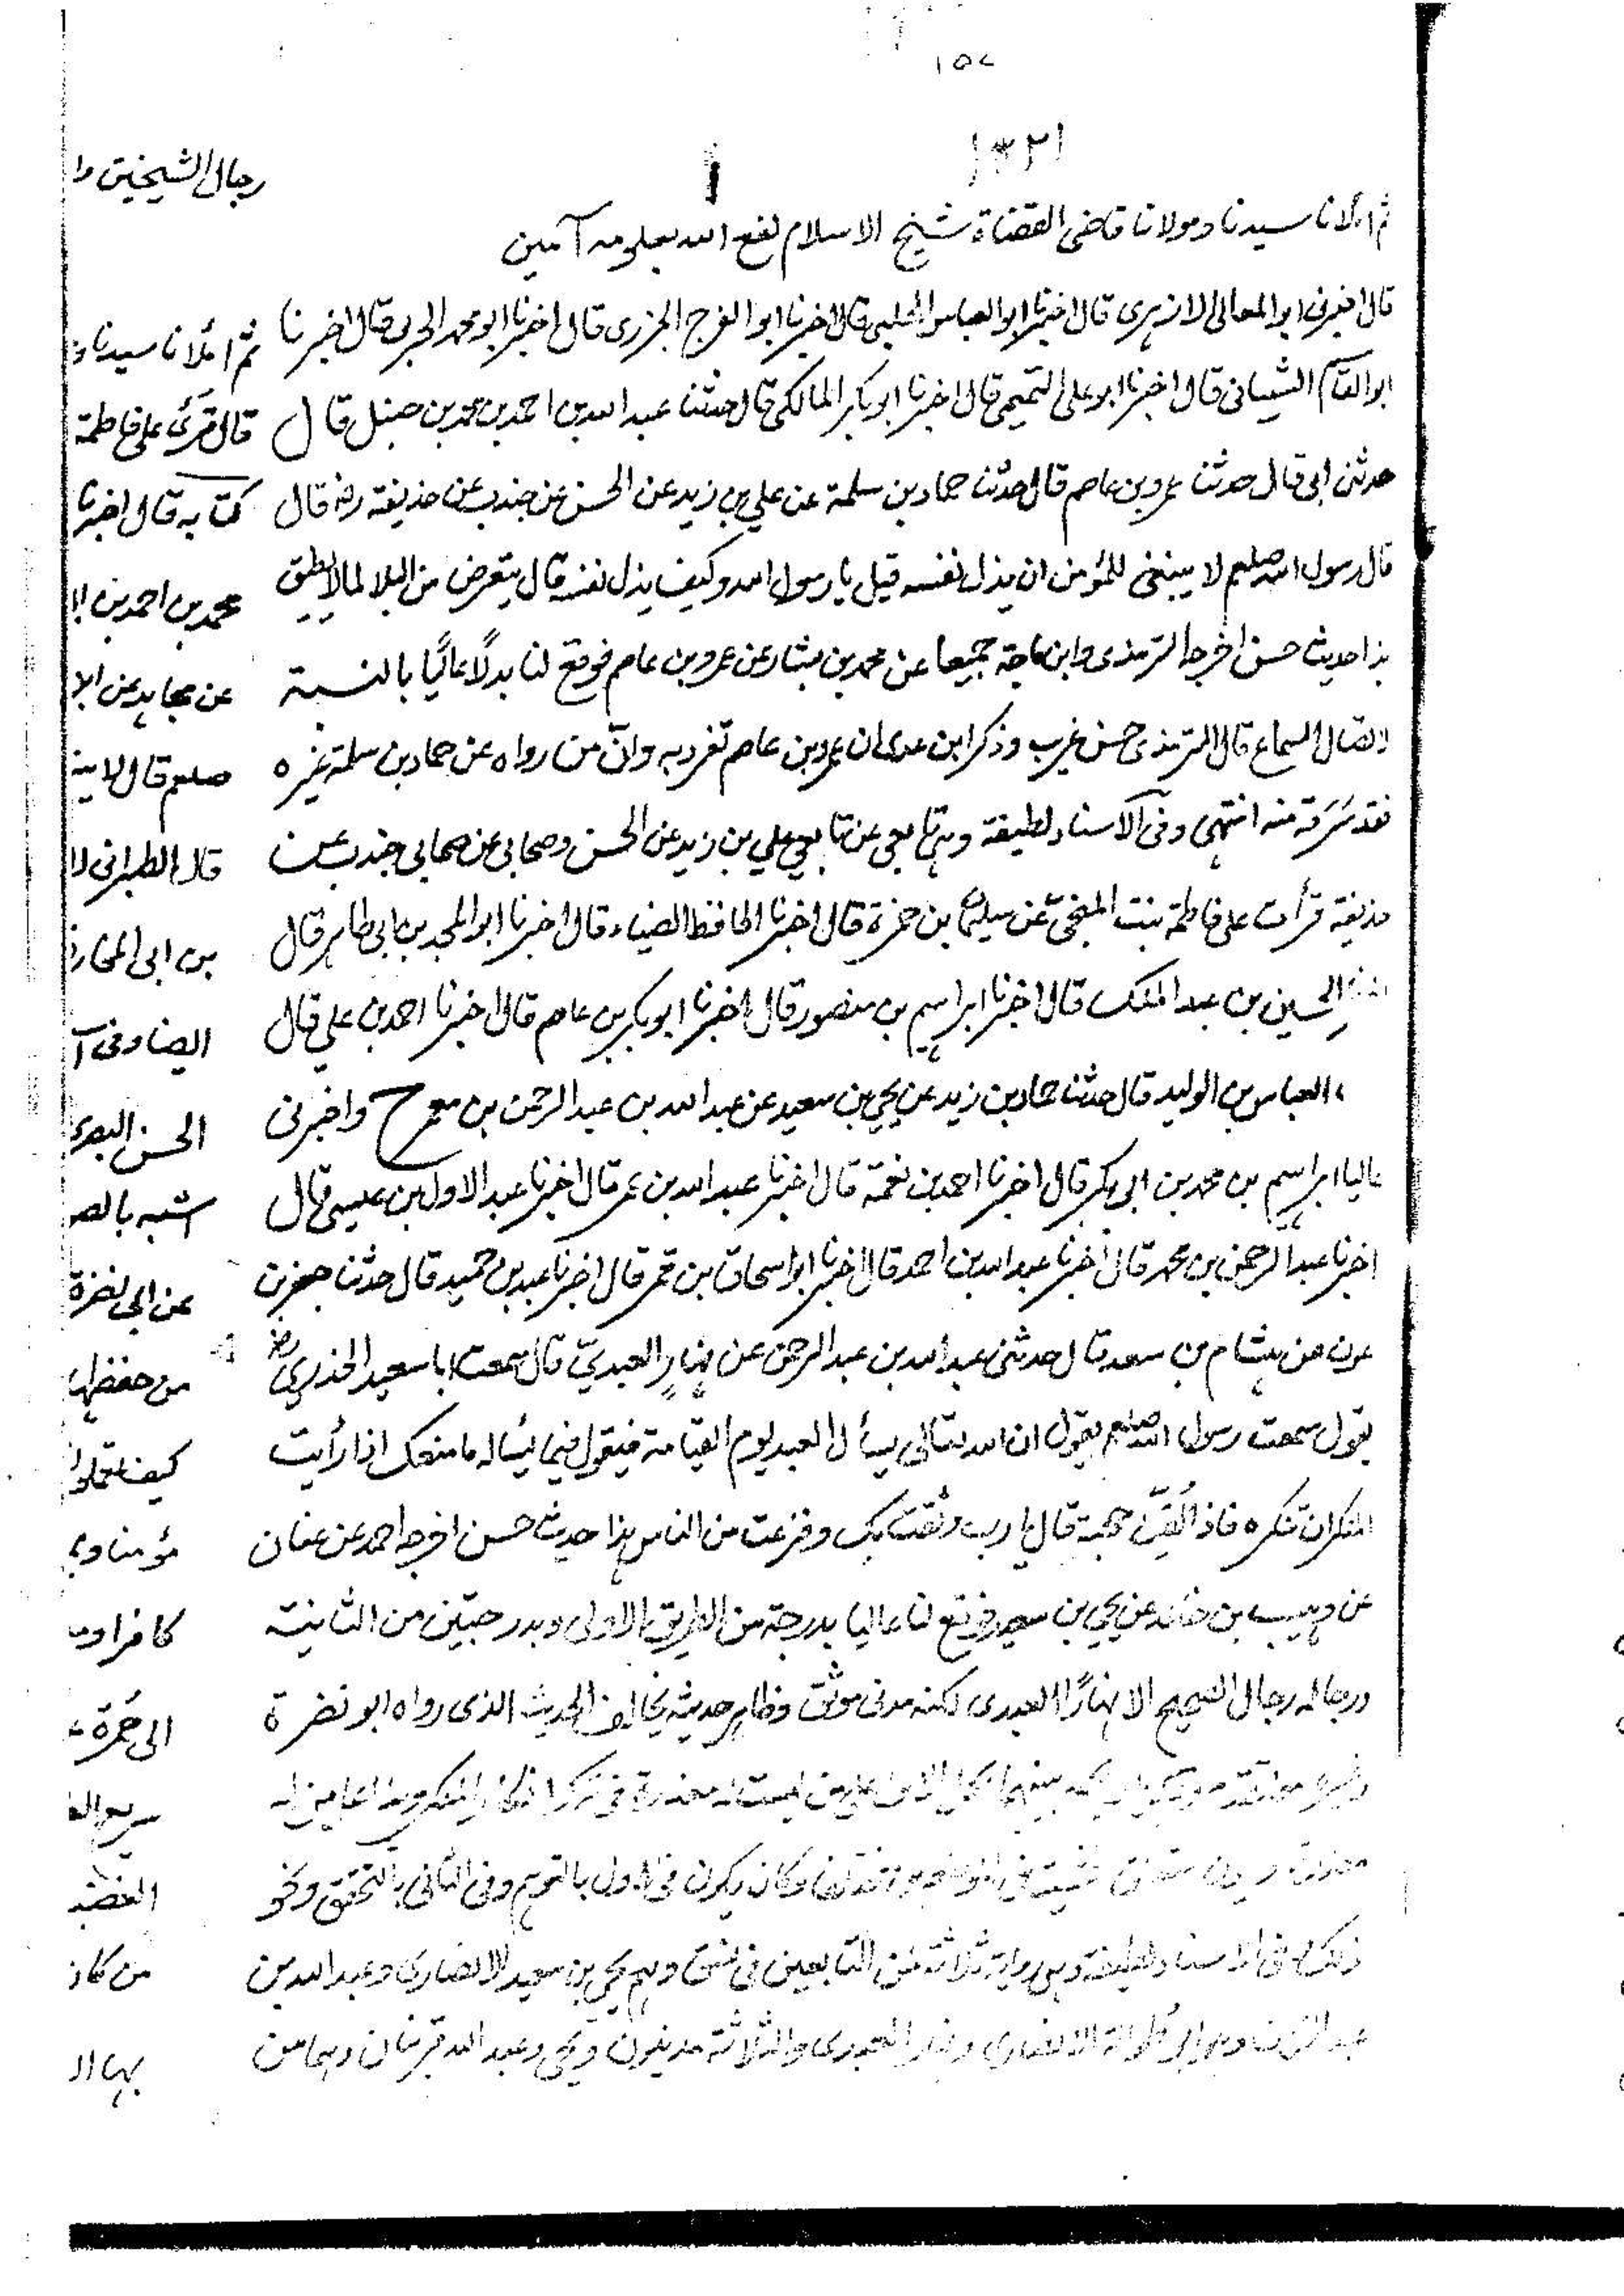 ١٥٧
ثم املانا سيدنا ومولانا قاضى القضاة شيخ الاسلام نفع الله بعلومه آمين
قال اخبرنى ابو المعالى الازهرى قال اخبرنا ابو العباس الحلبى قال اخبرنا ابو الفرج الجزرى قال اخبرنا ابو محمد الحربى قال اخبرنا
ابو القاسم الشيبانى قال اخبرنا ابو على التميمى قال اخبرنا ابو بكر المالكى قال حدثنا عبد الله بن احمد بن محمد بن حنبل قال
حدثنى ابى قال حدثنا عمرو بن عاصم قال حدثنا حماد بن سلمة عن علي بن زيد عن الحسن عن جندب عن حذيفة رض قال
قال رسول الله صلعم لا ينبغى للمؤمن ان يذل نفسه قيل يا رسول الله وكيف يذل نفسه قال يتعرض من البلا لما لا يطيق
هذا حديث حسن اخرجه الترمذى وابن ماجة جميعا عن محمد بن بشار عن عمرو بن عاصم فوقع لنا بدلًا عاليًا بالنسبة
لاتصال السماع قال الترمذى حسن غريب وذكر ابن عدى ان عمرو بن عاصم تفرد به وانّ من رواه عن حماد بن سلمة غيره
فقد سَرَقه منه انتهى وفى الاسناد لطيفة وهى تابعى عن تابعي علي بن زيد عن الحسن وصحابى عن صحابى جندب عن
حذيفة قرأت على فاطمة بنت المنجىّ عن سليمان بن حمزة قال اخبرنا الحافظ الضياء قال اخبرنا ابو المجد بن ابى طاهر قال
الحسين بن عبد الملك قال اخبرنا ابراهيم بن منصور قال اخبرنا ابو بكر بن عاصم قال اخبرنا احمد بن علي قال
العباس بن الوليد قال حدثنا حماد بن زيد عن يحيى بن سعيد عن عبد الله بن عبد الرحمن بن معمر ح واخبرنى
عاليا ابراهيم بن محمد بن ابى بكر قال اخبرنا احمد بن نعمة قال اخبرنا عبد الله بن عمر قال اخبرنا عبد الاول بن عيسى قال
اخبرنا عبد الرحمن بن محمد قال اخبرنا عبد الله بن احمد قال اخبرنا ابو اسحاق بن قمر قال اخبرنا عبد بن حميد قال حدثنا جعفر بن
عون عن هشام بن سعد قال حدثنى عبد الله بن عبد الرحمن عن نهار العبديّ قال سمعت ابا سعيد الخدرى رض
يقول سمعت رسول الله صلعم يقول ان الله تعالى يسأل العبد يوم القيامة فيقول فيما يسأله ما منعك اذا رأيت
المنكر ان تنكره فاذا لُقِّن حجته قال يا رب وثقت بك وفزعت من الناس هذا حديث حسن اخرجه احمد عن عفان
عن وهيب بن خالد عن يحيى بن سعيد فوقع لنا عاليا بدرجة من الطريق الاولى وبدرجتين من الثانية
ورجاله رجال الصحيح الا نهارًا العبدى لكنه مدنى موثق وظاهر حديثه يخالف الحديث الذى رواه ابو نضرة
فى الاول بالتوهم وفى الثانى بالتحقق ونحو
ذلك وفى الاسناد لطيفة وهى رواية ثلاثة من التابعين فى نسق وهم يحيى بن سعيد الانصارى وعبد الله بن
العبدى والثلاثة مدنيون ويحيى وعبد الله قرينان وهما من
رجال الشيخين وا
ثم املانا سيدنا و
قال قرئ على فاطمة
كتابه قال اخبرنا
محمد بن احمد بن
عن مجاهد عن
صلعم قال لا
قال الطبرانى لا
بن ابى
ايضا وفى
الحسن البصرى
اشبه بالص
عن ابى نضرة
من حفظها
كيف تعملوا
مؤمنا و
كافرا و
الى حمرة
سريع ال
الغضب
من كان
بها ال